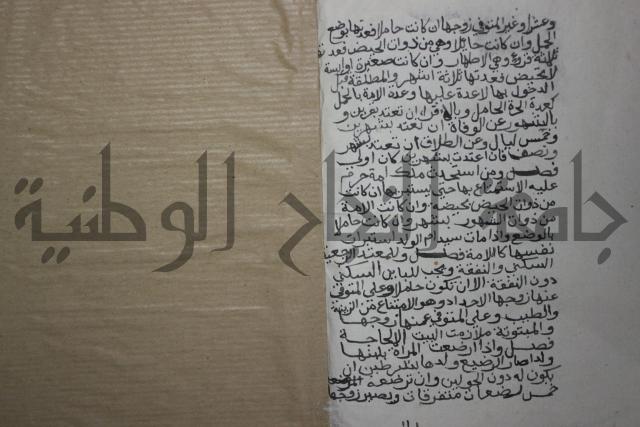 وعشرا وغير المتوفى زوجها ان كانت حاملا فعدتها بوضع
الحمل وان كانت حايلا وهي من ذوات الحيض فعدتها
ثلاثة قروء وهي الاطهار وان كانت صغيرة او ايسة
لا تحيض فعدتها ثلاثة اشهر والمطلقة قبل
الدخول بها لا عدة عليها وعدة الامة بالحمل
كعدة الحرة الحامل وبالاقراء ان تعتد بقرين و
بالشهور عن الوفاة ان تعتد بشهرين
وخمس ليال وعن الطلاق ان تعتد بشهر
ونصف فان اعتدت بشهرين كان اولى
فصل ومن استحدث ملك امة حرم
عليه الاستمتاع بها حتى يستبرئها ان كانت
من ذوات الحيض بحيضة وان كانت الامة
من ذوات الشهور بشهر وان كانت حامل
بالوضع واذا مات سيد ام الولد استبرت
نفسها كالامة فصل وللمعتدة الرجعية
السكنى والنفقة ويجب للباين السكنى
دون النفقة الا ان تكون حاملا وعلى المتوفى
عنها زوجها الاحداد وهو الامتناع من الزينة
والطيب وعلى المتوفى عنها زوجها
والمبتوتة ملازمة البيت الا لحاجة
فصل واذا ارضعت المراة بلبنها
ولدا صار الرضيع ولدها بشرطين ان
يكون له دون الحولين وان ترضعه المرضعة
خمس رضعات متفرقات ويصير زوجها
جامعة النجاح الوطنية